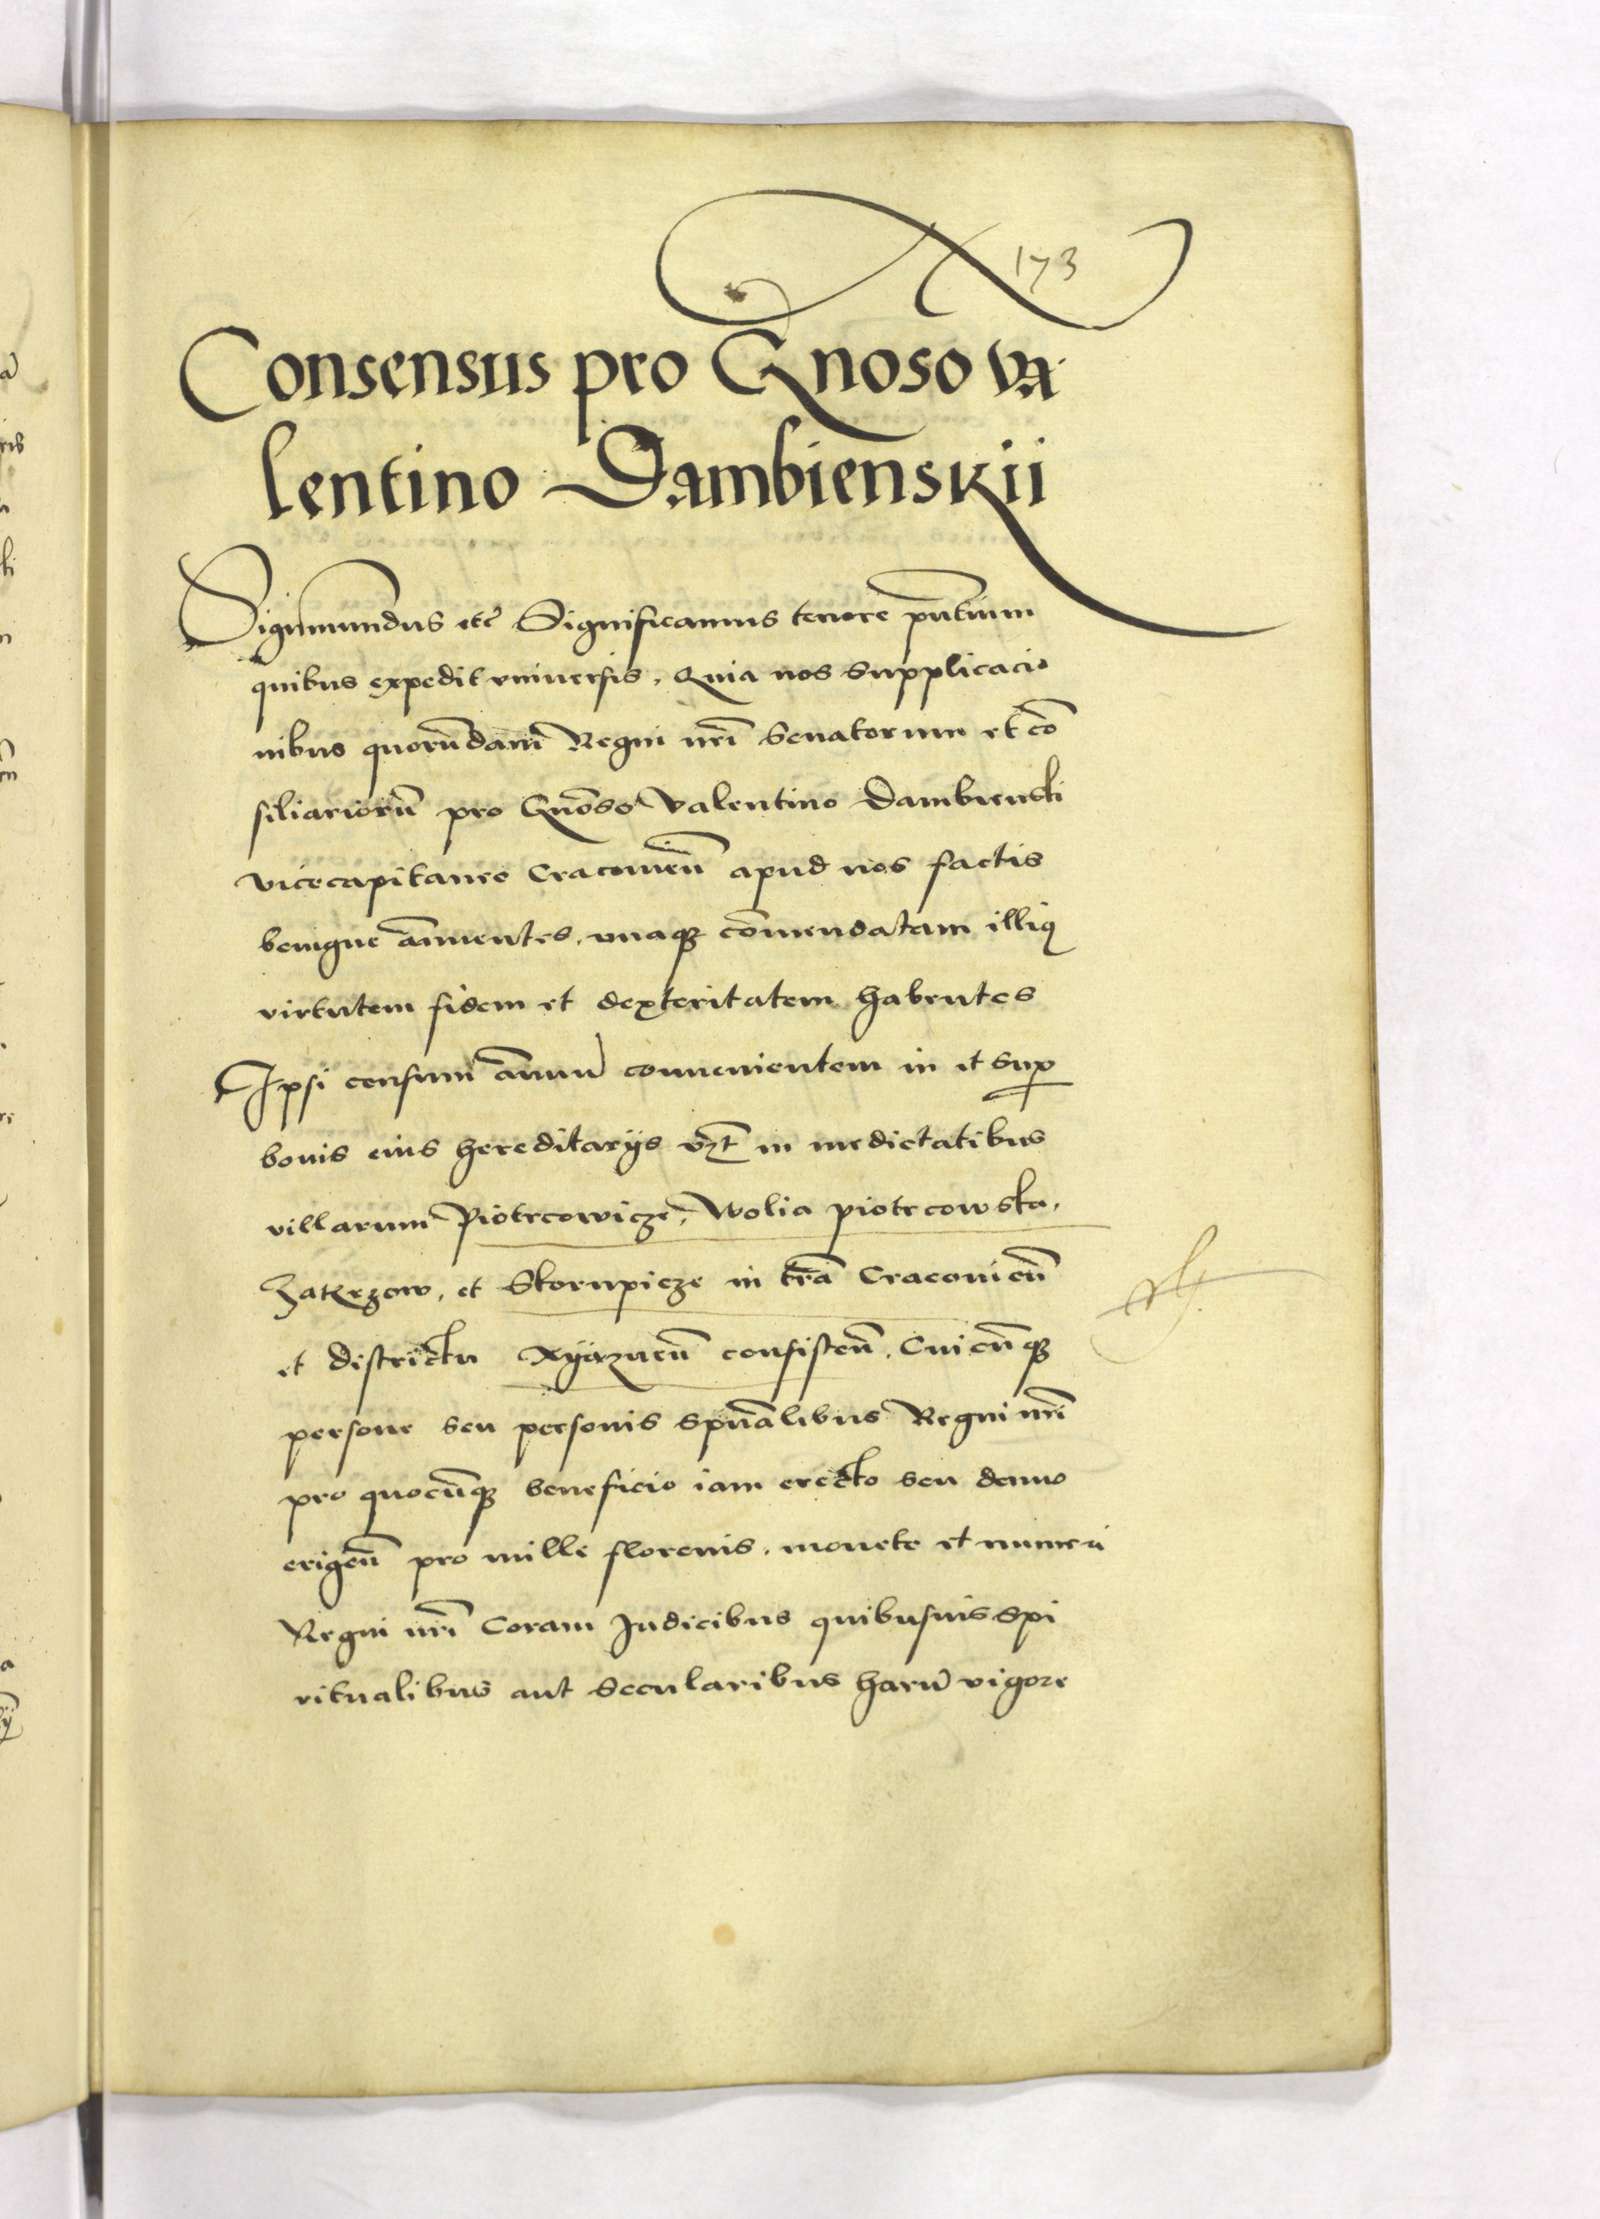 173
Consensus pro Gnoso va
lentino Dambienskii
Sigismundus etc Significamus tenore pntium
quibus expedit vniuersis, Quia nos supplicacio
nibus quorundam Regni nri Senatorum et co
siliarioru pro Gnoso Valentino Dambienski
vicecapitaneo Cracouien apud nos factis
benigne annuentes, vnaqz comendatam illiq
virtutem fidem et dexteritatem habentes
Ipsi censum annuu conuenientem in et sup
bonis eius hereditarijs vzt in medietatibus
villarum Piotrcowicze, Wolia piotrcowska,
Zakrzow, et Skorupicze in tra Cracouien
et districtu Xyaznen consisten, Cuicunqz
persone seu personis spualibus Regni nri
pro quocunqz beneficio iam erecto seu denuo
erigen pro mille florenis, monete et numeri
Regni nri Coram Judicibus quibusuis Spi
ritualibus aut Secularibus haru vigore